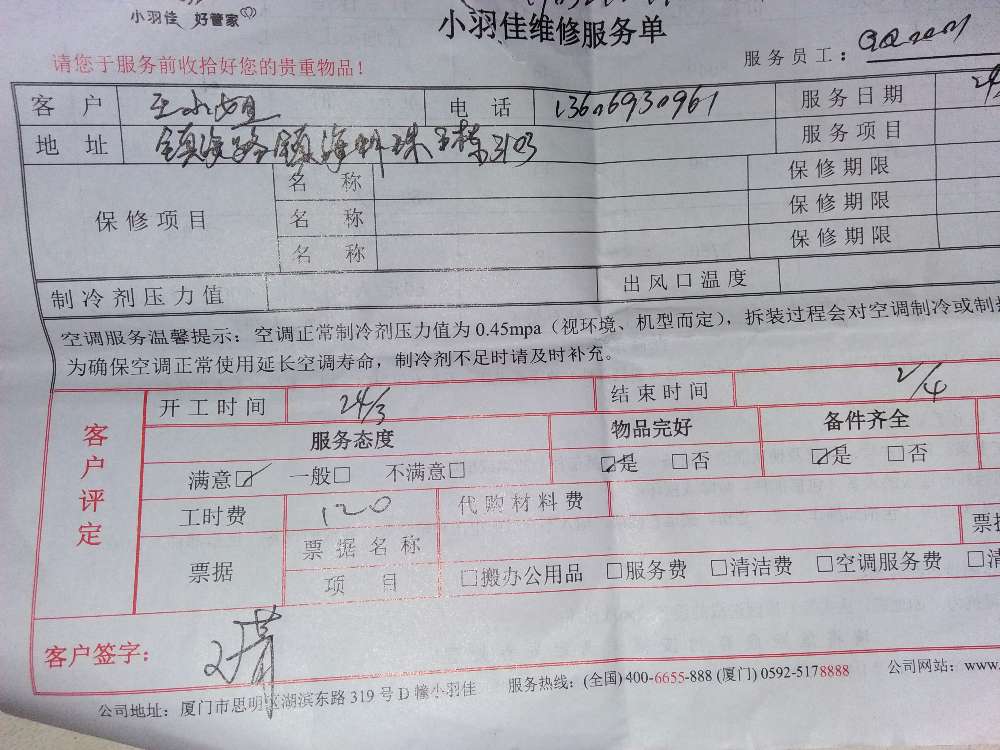 小羽佳 好管家
小羽佳维修服务单
请您于服务前收拾好您的贵重物品！ 服务员工：
客 户 电 话 13606930961 服务日期
地 址 镇海路镇海 服务项目
保修项目 名 称 保修期限
名 称 保修期限
名 称 保修期限
制冷剂压力值 出风口温度
空调服务温馨提示：空调正常制冷剂压力值为 0.45mpa（视环境、机型而定），拆装过程会对空调制冷或制热
为确保空调正常使用延长空调寿命，制冷剂不足时请及时补充。
客户评定 开工时间 24/3 结束时间 2/4
服务态度 物品完好 备件齐全
满意☑ 一般□ 不满意□ ☑是 □否 ☑是 □否
工时费 120 代购材料费
票据 票据名称 票据
项 目 □搬办公用品 □服务费 □清洁费 □空调服务费 □清
客户签字：
公司地址：厦门市思明区湖滨东路 319 号 D 幢小羽佳 服务热线：(全国) 400-6655-888 (厦门) 0592-5178888 公司网站：www.